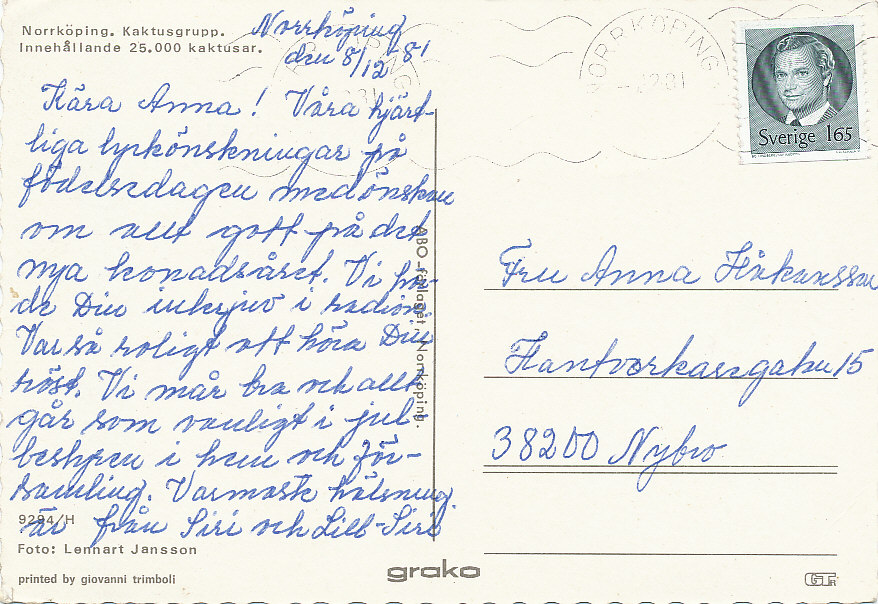 Norrköping. Kaktusgrupp.
Innehållande 25.000 kaktusar.
Norrköping
den 8/12 81
Kära Anna! Våra hjärt-
liga lyckönskningar på
födelsedagen med önskan
om allt gott på det
nya levnadsåret. Vi hör-
de Din i radion.
Var så roligt att höra Din
röst. Vi mår bra och allt
går som vanligt i jul
i hem och för-
samling. Varmaste hälsning
är från Siri och Lill-Siri
9294/H
Foto: Lennart Jansson
printed by giovanni trimboli
ABO-förlaget, Norrköping.
grako
NORRKÖPING
Sverige 165
Fru Anna Håkansson
Hantverkaregatan 15
38200 Nybro